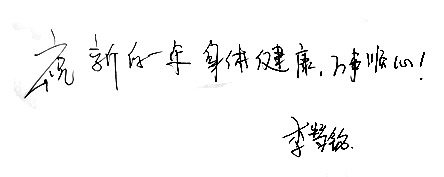 祝新的一年身体健康,万事顺心!